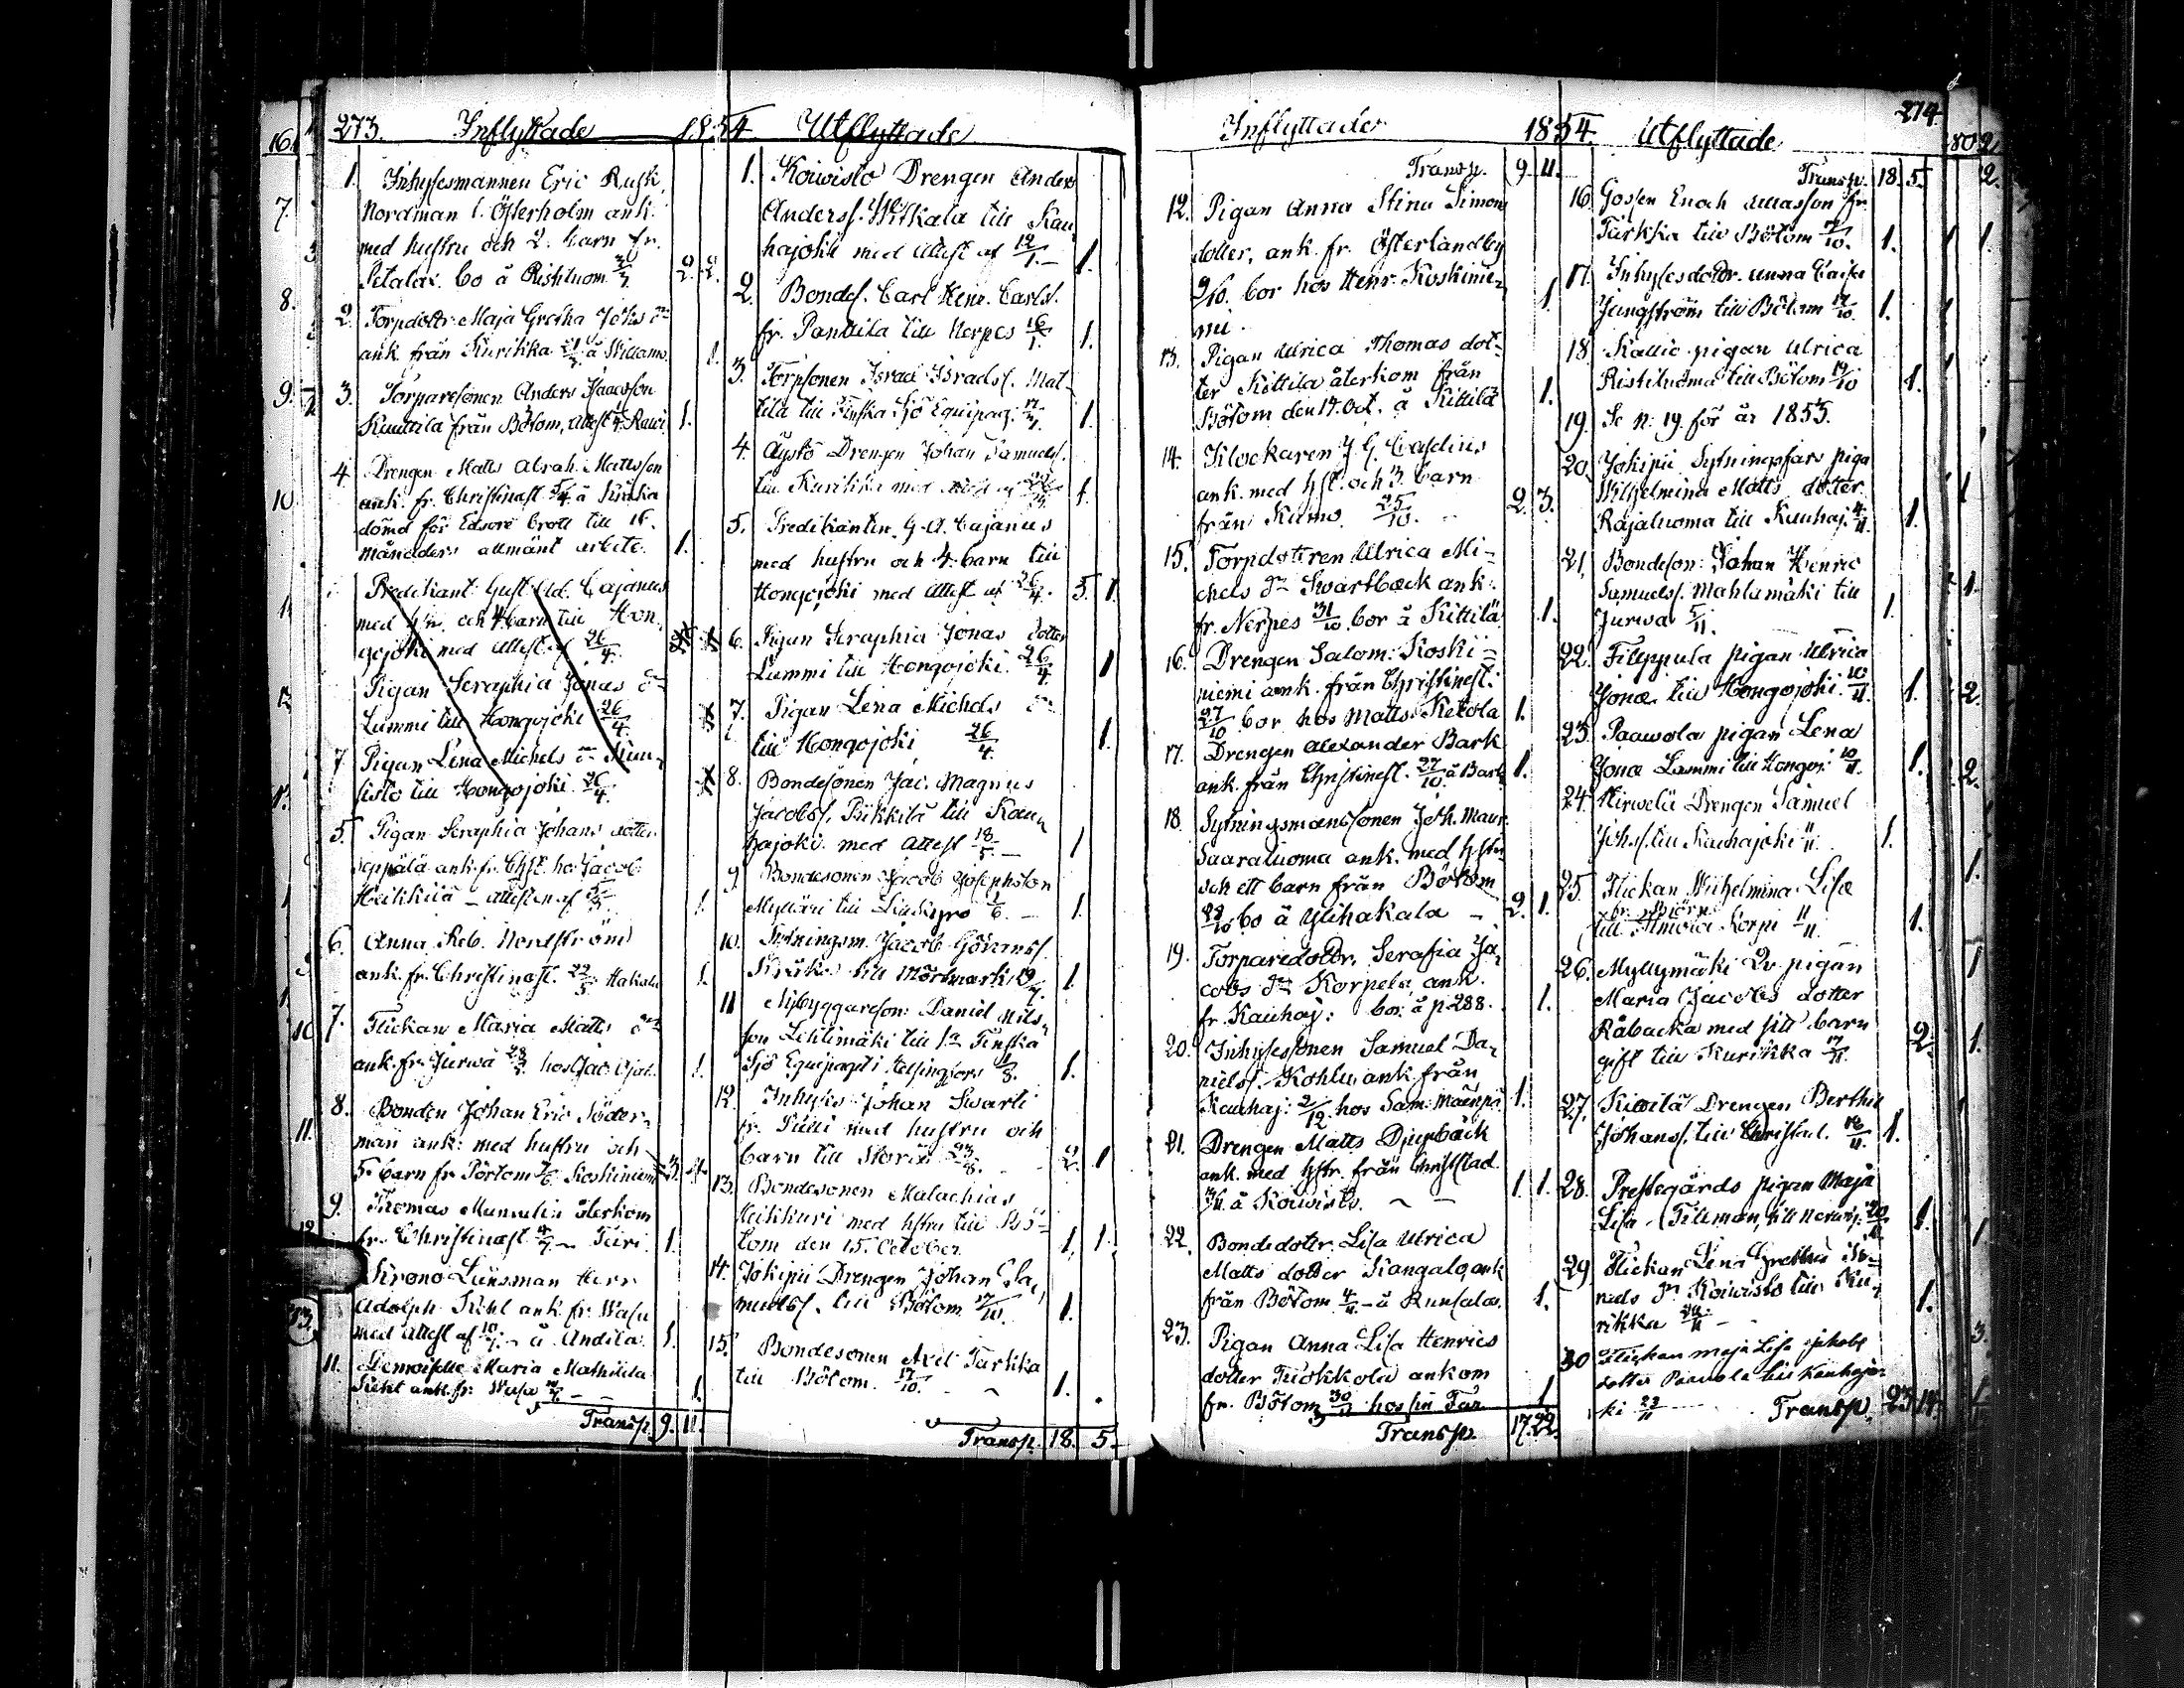 273. Inflyttade 1854. Utflyttade
1. Inhysesmannen Eric Rusk,
Nordman l. Österholm ank.
med hustru och 2. barn fr.
Petalax. bo å Ristiluom 2. 2.
2. Torpdottr. Maja Greta Johs dr
ank. från Kurikka å Willamo. 1.
3. Torparesonen Anders Isaacsson
Kuuttila från Bötom, 1.
4. Drengen Matts Abrah. Mattsson
ank. fr. Christinast. 5/4 å
dömd för Edsöre brott till 16.
månaders allmänt arbete. 1.
Predikant. Gust. Ad. Cajanus
med h:u. och 4. barn till Hon-
gojoki med attest af 26/4.
Pigan Seraphia Jonas dr
Lummi till Hongojoki 26/4.
7. Pigan Lena Michels dr
till Hongojoki 26/4.
5. Pigan Seraphia Johans dotter
Seppälä ank. fr. Chst. hos Jacob
Heikkilä – attesten af 1.
6. Anna Reb.
ank. fr. Christinast. 22/5 Hakala 1.
7. Flickan Maria Matts dr
ank. fr. Jurwa hos Jac. 1.
8. Bonden Johan Eric Söder-
man ank. med hustru och
5. barn fr. Pörtom Koskiniemi 3. 4.
9. Thomas återkom
fr. Christinast. 4/7 – Turi. 1.
Krono Länsman Herr
Adolph Kihl ank. fr. Wasa
med attest af 10/7 – å Andila. 1.
11. Demoiselle Maria Mathilda
Kihl ank. fr. Wasa 1.
Transp. 9. 11.
1. Koiwisto Drengen Anders
Anderss. Witkala till Kau-
hajoki med attest af 12/1. – 1.
2. Bondes. Carl Henr. Carls.
fr. Panttila till Nerpes 16/1. 1.
3. Torpsonen Israel Israels. Mat-
tila till Finska Sjö Equipag. 1.
4. Äystö Drengen Johan Samuels.
till Kurikka med attest af 1.
5. Predikanten G. A. Cajanus
med hustru och 4. barn till
Hongojoki med attest af 26/4. 5. 1.
6. Pigan Seraphia Jonas dotter
Lummi till Hongojoki 26/4. 1
7. Pigan Lena Michels dr
till Hongojoki 26/4. 1.
8. Bondesonen Jac. Magnus
Jacobs. Pikkilä till Kau-
hajoki med attest 18/5. – 1
9. Bondesonen Jacob Josephsson
Mylläri till 1/6. – 1.
10. Sytningsm. Jacob Görans.
till Mörtmark 19/7. 1.
11 Nybyggareson: Daniel Nils-
son Lehtimäki till 1a Finska
Sjö Equipaget i Helsingfors 1/8. 1.
12. Inhyses Johan Swarti
fr. Pulli med hustru och
barn till Storå 23/8. 2. 1
13. Bondesonen Malachias
Heikkuri med hstru till Bö-
tom den 15. October. 1. 1.
14. Jokipii Drengen Johan Sa-
muels. till Bötom 17/10. 1.
15. Bondesonen Axel Turkka
till Bötom. 17/10. 1.
Transp. 18. 5.
Inflyttade 1854. Utflyttade 274
Transp. 9. 11.
12. Pigan Anna Stina Simons
dotter, ank. fr. Österlandby
9/10. bor hos Henr. Koskinie-
mi. 1
13. Pigan Ulrica Thomas dot-
ter Kittila återkom från
Bötom den 17. Oct. å Kittilä 1.
14. Klockaren J. G. Caselius
ank. med hst. och 3. barn
från Kumo. 25/10. 2. 3.
15. Torpdottren Ulrica Mi-
chels dr Swartback ank.
fr. Nerpes 31/10. bor å Kittilä 1.
16. Drengen Salom. Koski-
niemi ank. från Christinest.
27/10 bor hos Matts Ketola 1.
17. Drengen Alexander Bark
ank. från Christinest. 27/10. å Bark 1.
18. Sytningsmanssonen Joh. Maur.
Saaraluoma ank. med hstru
och ett barn från Bötom
bo å Ylihakala – 2. 1.
19. Torparedottr. Serafia Ja-
cobs dr Korpela, ank.
fr. Kauhaj: bor. å p. 288. 1.
20. Inhysessonen Samuel Da-
niels. ank. från
Kauhaj: 2/12. hos Sam. Mäenpä 1.
21. Drengen Matts Djupbäck
ank. med hstr. från Christstad.
å Koiwisto. 1. 1.
22. Bondedoter Lisa Ulrica
Matts dotter Kangalo, ank
från Bötom 4/11 – å 1.
23. Pigan Anna Lisa Henrics
dotter ankom
fr. Bötom 30/11 hos sin Far 1.
Transp. 17. 22.
Transp. 18. 5.
16. Gossen Enoch fr.
Turkka till Bötom 17/10. 1.
17. Inhysesdottr. Anna Caisa
Jungström till Bötom 17/10. 1.
18. Kallio pigan Ulrica
Ristiluoma till Bötom 19/10 1.
19. Se N: 19. för år 1853.
20. Jokipii Sytningsfars piga
Wilhelmina Matts dotter
Rajaluoma till Kauhaj. 4/11. 1.
21. Bondeson: Johan Henric
Samuels. Mahlamäki till
Jurwa 5/11. 1.
22. Filppula pigan Ulrica
Jonæ till Hongojoki. 10/11. 1.
23. Paawola pigan Lena
Jonæ Lummi till Hongoj: 10/11. 1.
24. Hirwelä Drengen Samuel
Johs. till Kauhajoki 11/11. 1.
25. Flickan Wilhelmina Lisa
till Ilmola Korpi 11/11. 1.
26. Myllymäki Qv. pigan
Maria Jacobs dotter
Råbacka med sitt barn
gift till Kurikka 17/11. 2.
27. Kiwilä Drengen Berthil
Johans. till Christad. 1.
28. Prestegårds pigan Maja
Lisa Tillman, till 20/11 1.
29 Flickan Lena Gretha
dr Koiwisto till Ku-
rikka 1.
30 Flickan Maja Lisa
dotter Paavola till Kauhajo-
ki 23/11 Transp. 23. 14.